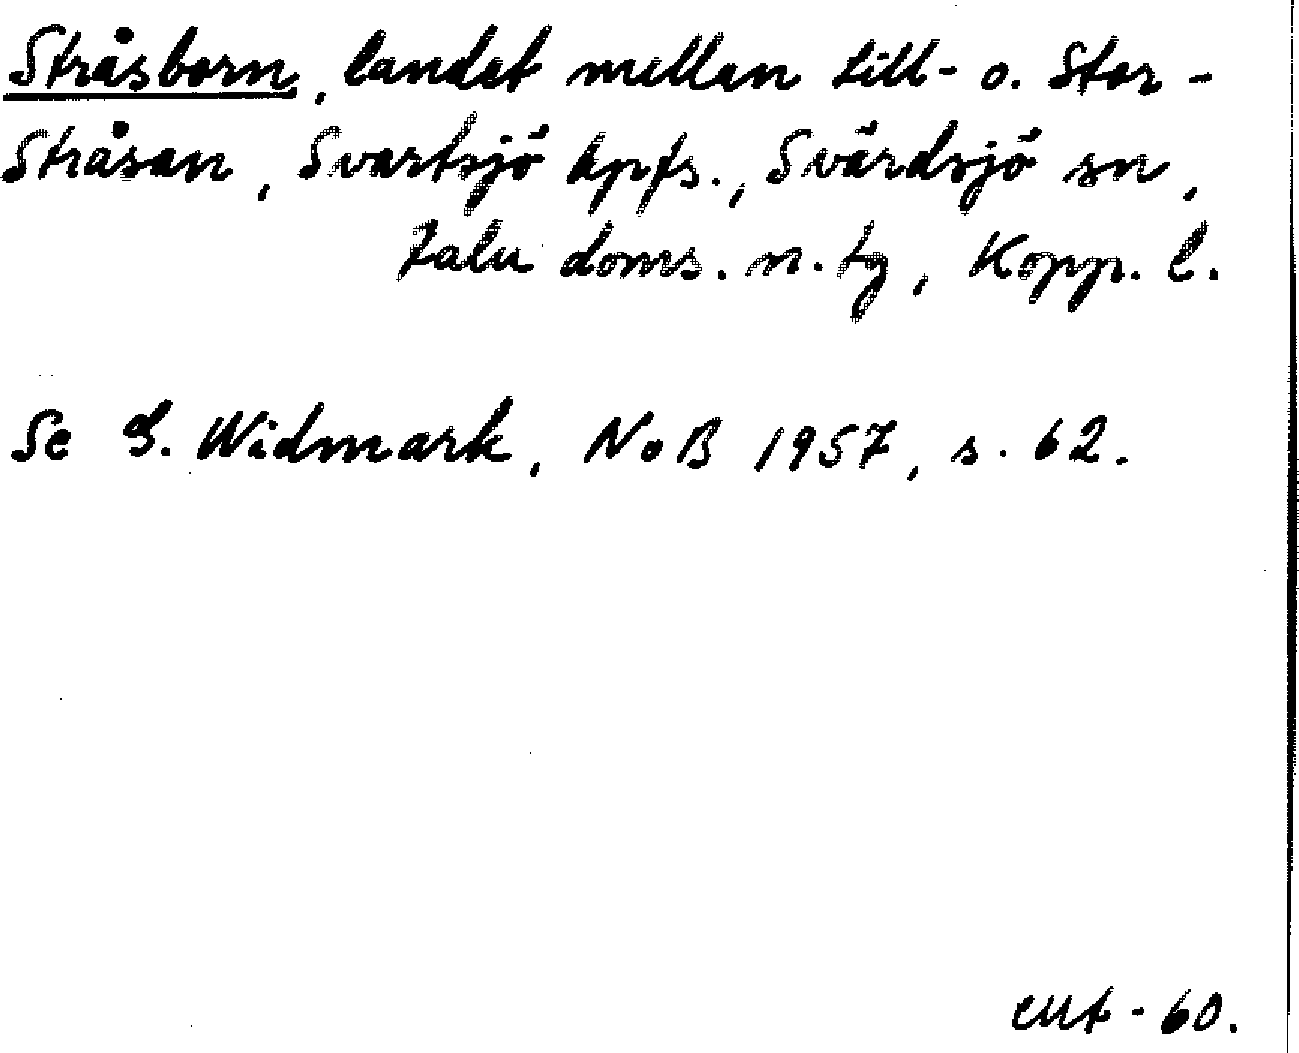 Stråsborn, landet mellan Lill- o. Stor-
Stråsan, Svartsjö kpfs., Svärdsjö sn,
Falu doms. n. tg, Kopp. l.
Se G. Widmark, NoB 1957, s. 62.
-60.